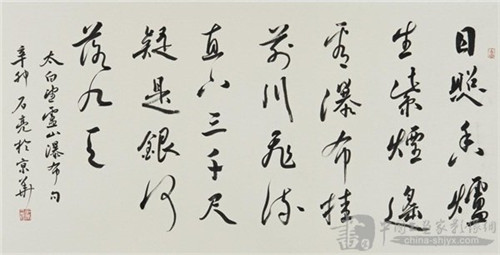 日照香爐
生紫煙遙
看瀑布挂
前川飛流
直下三千尺
疑是銀河
落九天
太白望廬山瀑布句
辛卯 石亮於京華
china-shjyx.com